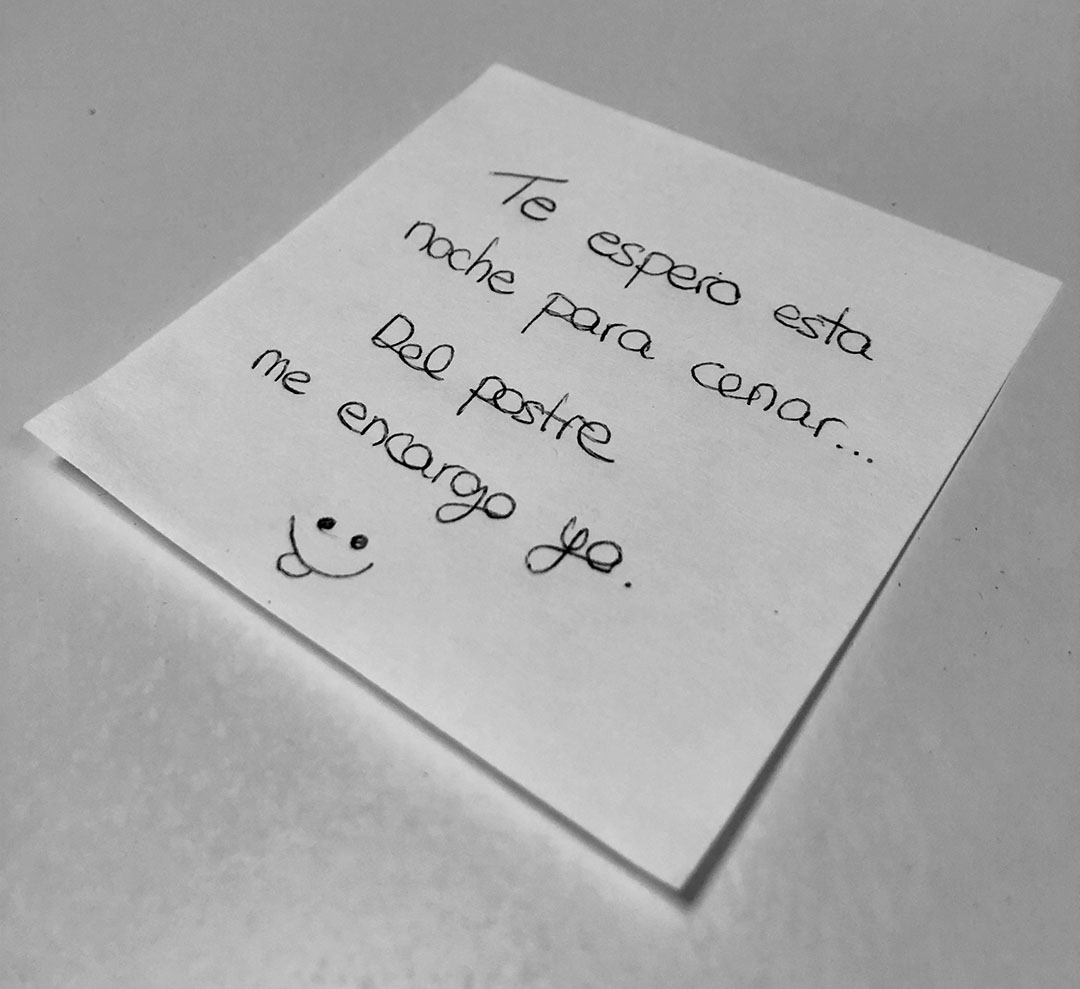 Te espero esta
noche para cenar...
Del postre
me encargo yo.